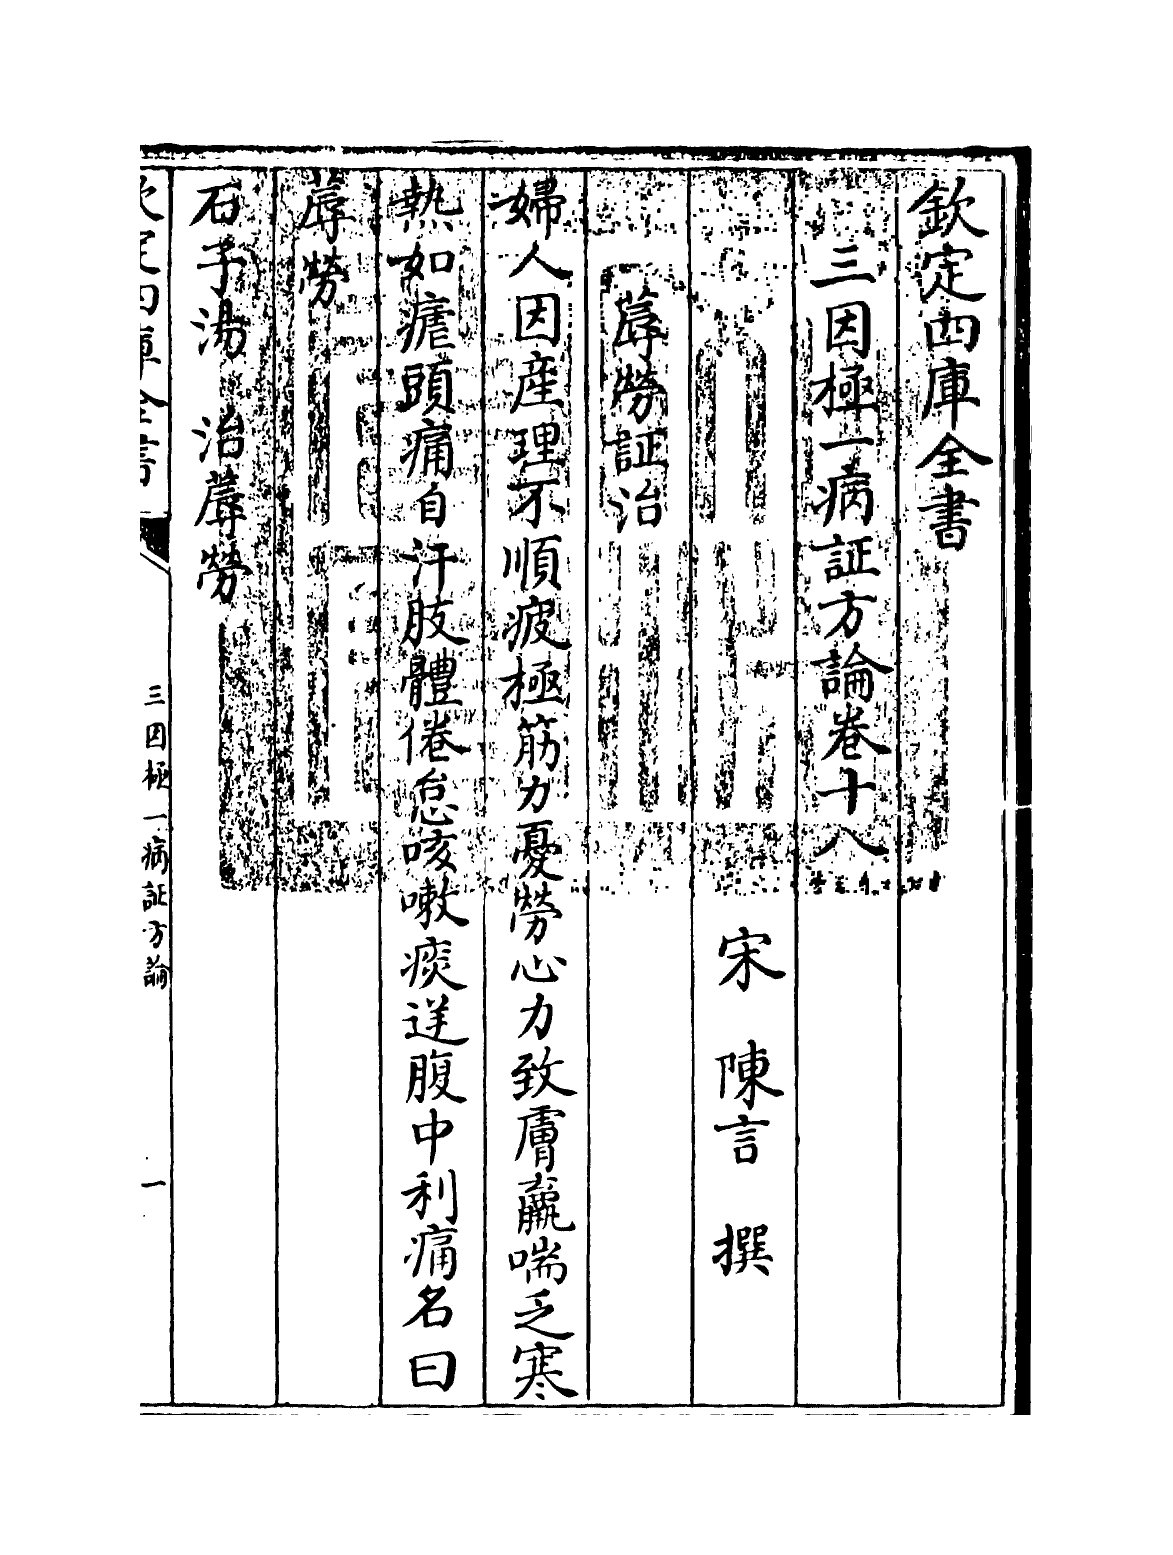 欽定四庫全書
三因極一病証方論卷十八
宋 陳言 撰
蓐勞証治
婦人因産理不順疲極筋力憂勞心力致膚羸喘乏寒
熱如瘧頭痛自汗肢體倦怠咳嗽痰逆腹中利痛名曰
蓐勞
石子湯 治蓐勞
欽定四庫全書
三因極一病証方論
一